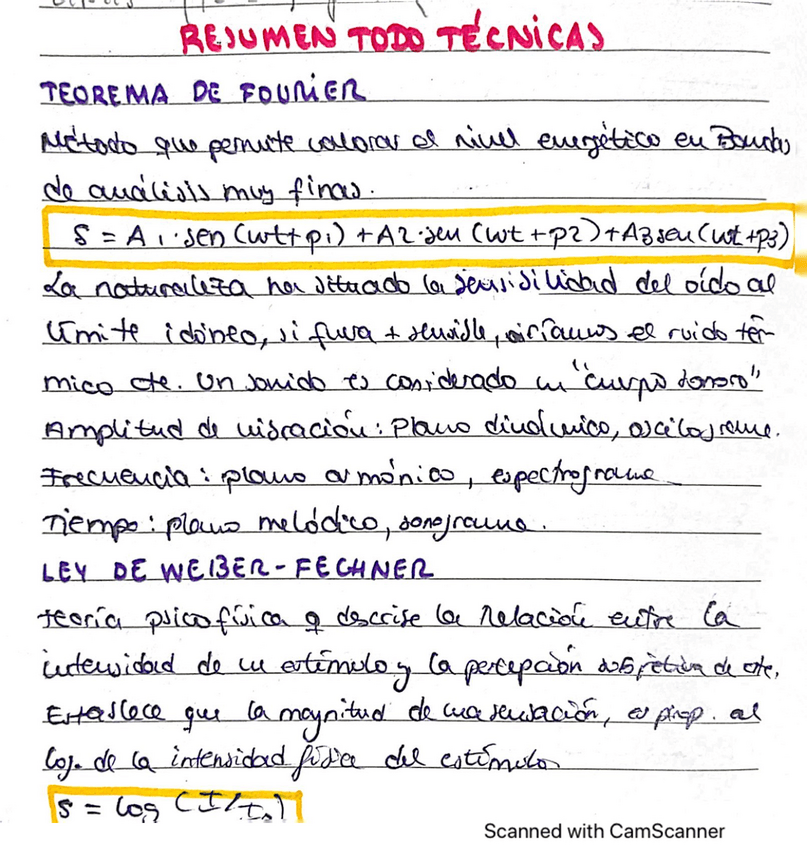 RESUMEN TODO TÉCNICAS
TEOREMA DE FOURIER
Método que permite valorar el nivel energético en Bandas
de análisis muy finas.
S = A1·sen (wt+p1) + A2·sen (wt + p2) + A3sen (wt+p3)
La naturaleza ha situado la sensibilidad del oído al
límite idóneo, si fuera + sensible, oiríamos el ruido tér-
mico etc. Un sonido es considerado un "cuerpo sonoro"
Amplitud de vibración: Plano dinámico, oscilograma.
Frecuencia: plano armónico, espectrograma
Tiempo: plano melódico, sonograma.
LEY DE WEIBER-FECHNER
teoría psicofísica q describe la relación entre la
intensidad de un estímulo y la percepción subjetiva de este.
Establece que la magnitud de una sensación, es prop. al
log. de la intensidad física del estímulo
S = log (I/I₀)
Scanned with CamScanner